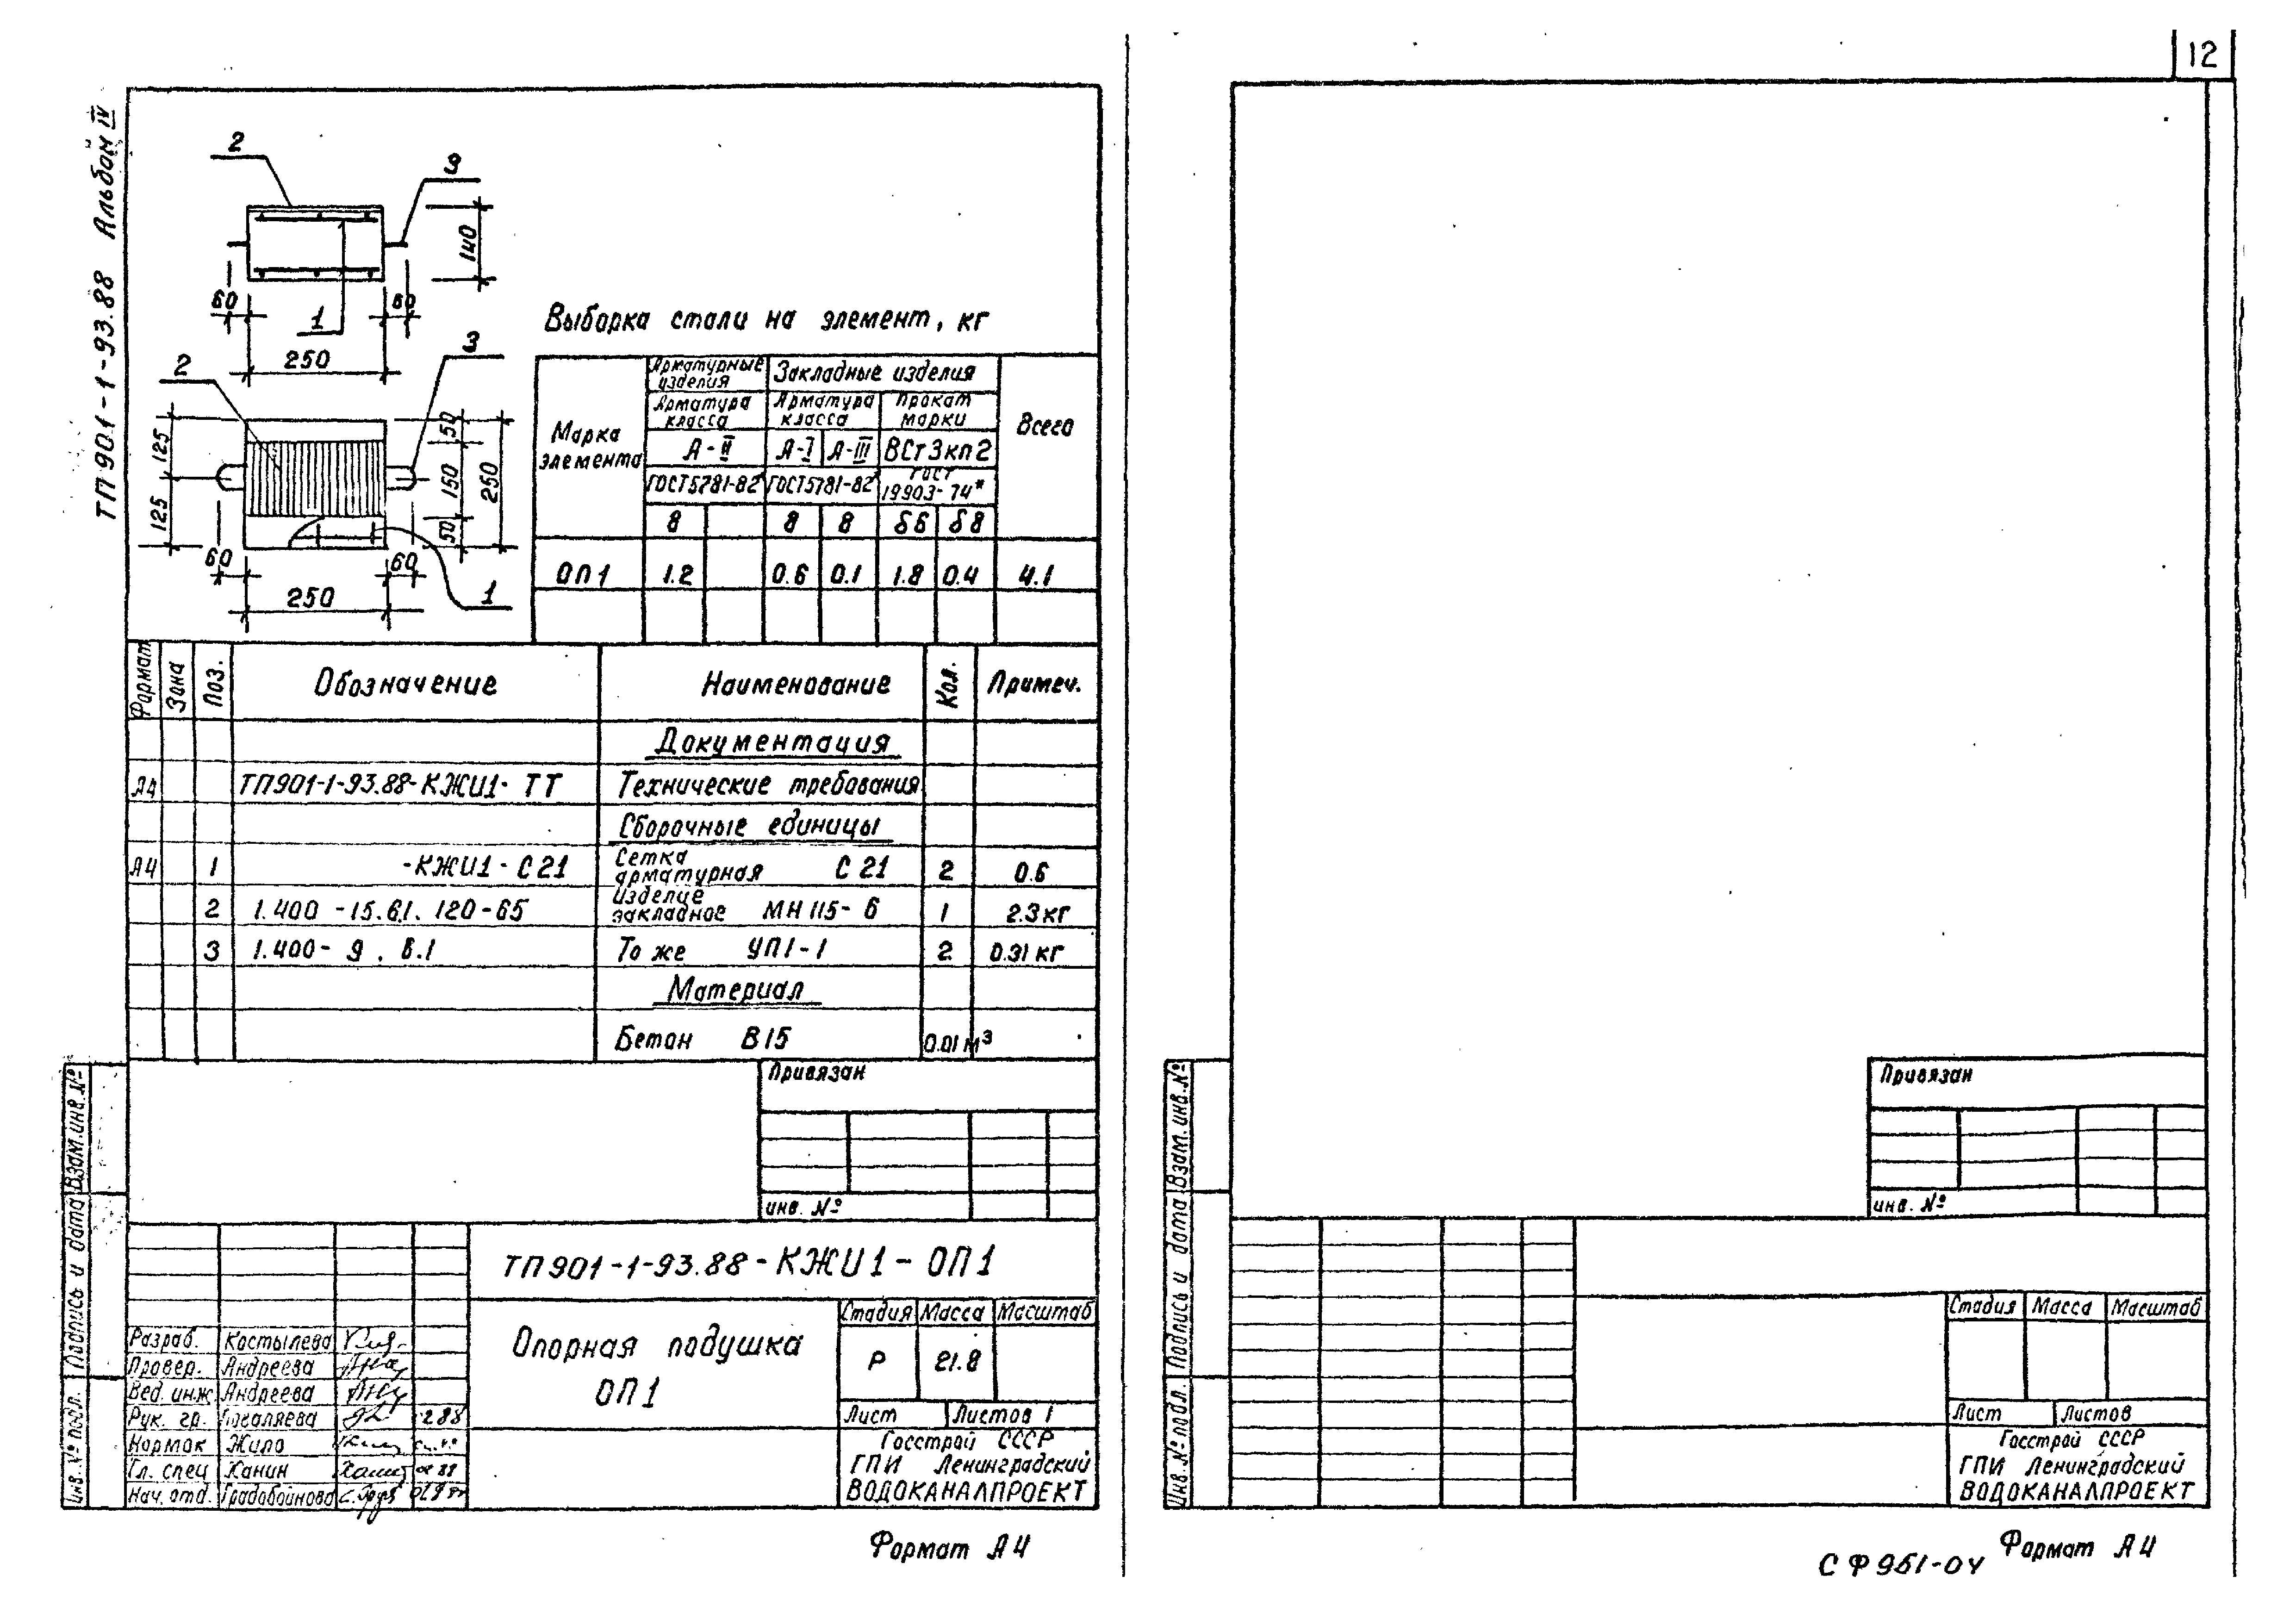 12
ТП 901-1-93.88 Альбом IV
2
3
140
60
60
1
250
3
2
125
125
50
150
50
250
60
60
250
1
Выборка стали на элемент, кг
Марка элемента
Арматурные изделия
Закладные изделия
Всего
Арматура класса
Арматура класса
Прокат марки
А-II
А-I
А-III
ВСт3кп2
ГОСТ5781-82
ГОСТ5781-82
ГОСТ 19903-74*
8
8
8
δ6
δ8
ОП1
1.2
0.6
0.1
1.8
0.4
4.1
Формат
Зона
Поз.
Обозначение
Наименование
Кол.
Примеч.
Документация
А4 ТП901-1-93.88-КЖИ1-ТТ Технические требования
Сборочные единицы
А4 1 -КЖИ1-С21 Сетка арматурная С21 2 0.6
2 1.400-15.61.120-65 Изделие закладное МН115-6 1 2.3кг
3 1.400-9.в.1 То же УП1-1 2 0.31кг
Материал
Бетон В15 0.01м³
Привязан
инв. №
Взам.инв.№
Подпись и дата
Инв. № подл.
ТП901-1-93.88-КЖИ1-ОП1
Опорная подушка
ОП1
Стадия Масса Масштаб
Р 21.8
Лист Листов 1
Госстрой СССР
ГПИ Ленинградский
ВОДОКАНАЛПРОЕКТ
Разраб. Костылева
Провер. Андреева
Вед. инж Андреева
Рук. гр. 288
Нормок Жило
Гл. спец Ханин
Нач. отд. Градобойнова
Формат А4
Привязан
инв. №
Взам.инв.№
Подпись и дата
Инв.№ подл.
Стадия Масса Масштаб
Лист Листов
Госстрой СССР
ГПИ Ленинградский
ВОДОКАНАЛПРОЕКТ
Формат А4
СФ961-04